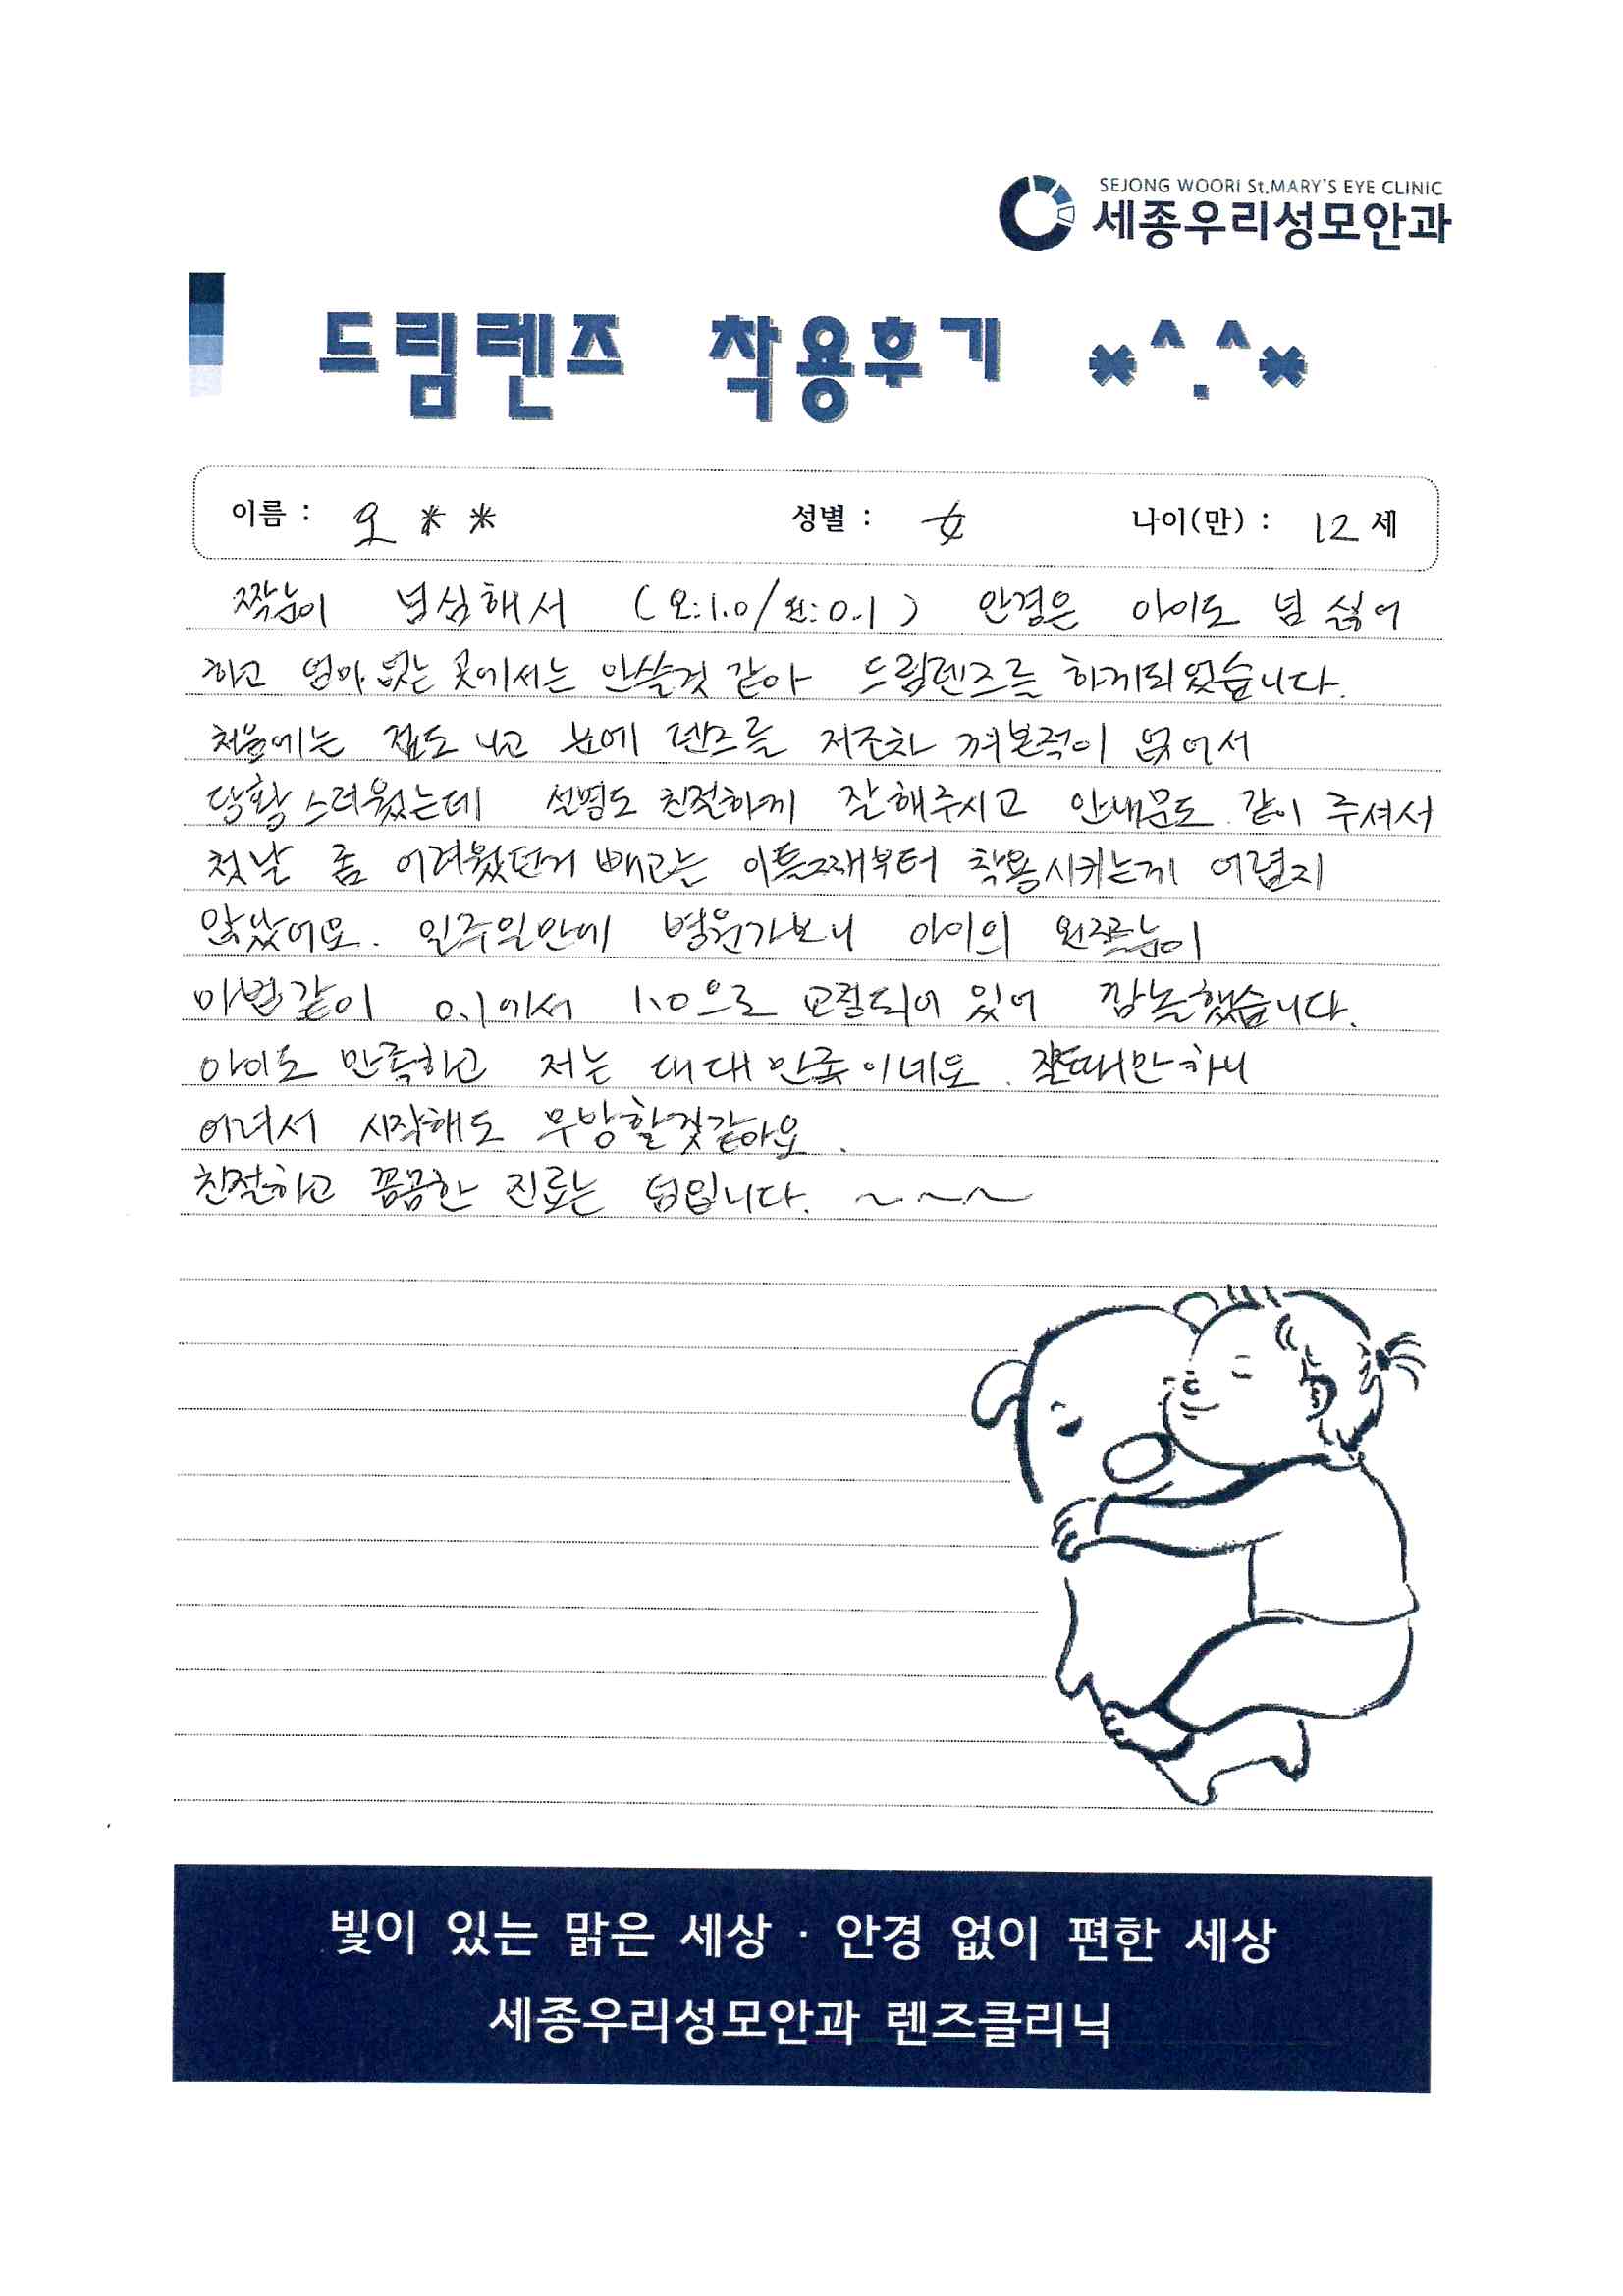 SEJONG WOORI St.MARY'S EYE CLINIC
세종우리성모안과
드림렌즈 착용후기 *^.^*
이름 : 오 * * 성별 : 女 나이(만) : 12 세
짝눈이 넘심해서 (오:1.0/왼:0.1) 안경은 아이도 넘 싫어
하고 엄마 없는 곳에서는 안쓸것 같아 드림렌즈를 하게되었습니다.
처음에는 겁도 나고 눈에 렌즈를 저조차 껴본적이 없어서
당황스러웠는데 설명도 친절하게 잘해주시고 안내문도 같이 주셔서
첫날 좀 어려웠던거 빼고는 이틀째부터 착용시키는게 어렵지
않았어요. 일주일안에 병원가보니 아이의 왼쪽눈이
마법같이 0.1에서 1.0으로 교정되어 있어 깜놀했습니다.
아이도 만족하고 저는 대대만족이네요. 잘때만하니
어려서 시작해도 무방할것같아요.
친절하고 꼼꼼한 진료는 덤입니다. ~~~
빛이 있는 맑은 세상 · 안경 없이 편한 세상
세종우리성모안과 렌즈클리닉